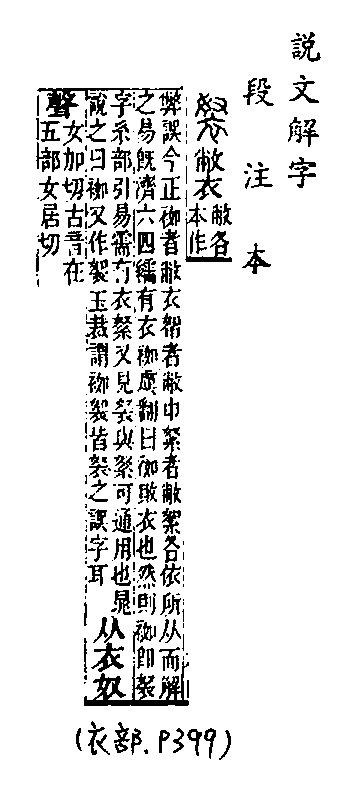 說文解字
段注本
敝衣敝各
本作
弊誤今正袽者敝衣帤者敝巾絮者敝絮各依所从而解
之易旣濟六四繻有衣袽虞翻曰袽敗衣也然則袽卽
字糸部引易需有衣絮又見與絮可通用也晁
說之曰袽又作玉裁謂袽皆之誤字耳
从衣奴
聲女加切古音在
五部女居切
(衣部.P399)